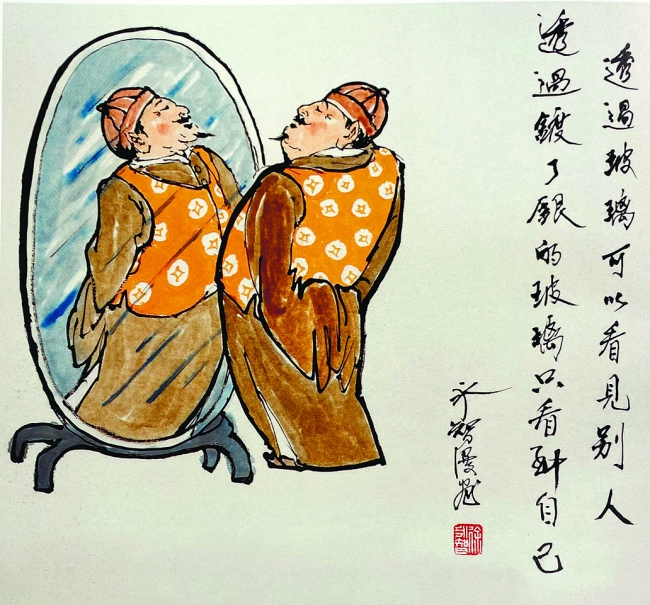 透過玻璃可以看見别人
透過鍍了銀的玻璃只看到自己
永智漫